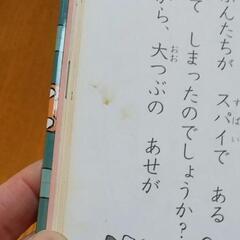 ぶんたちが スパイで ある
て しまったのでしょうか?
から、大つぶの あせが